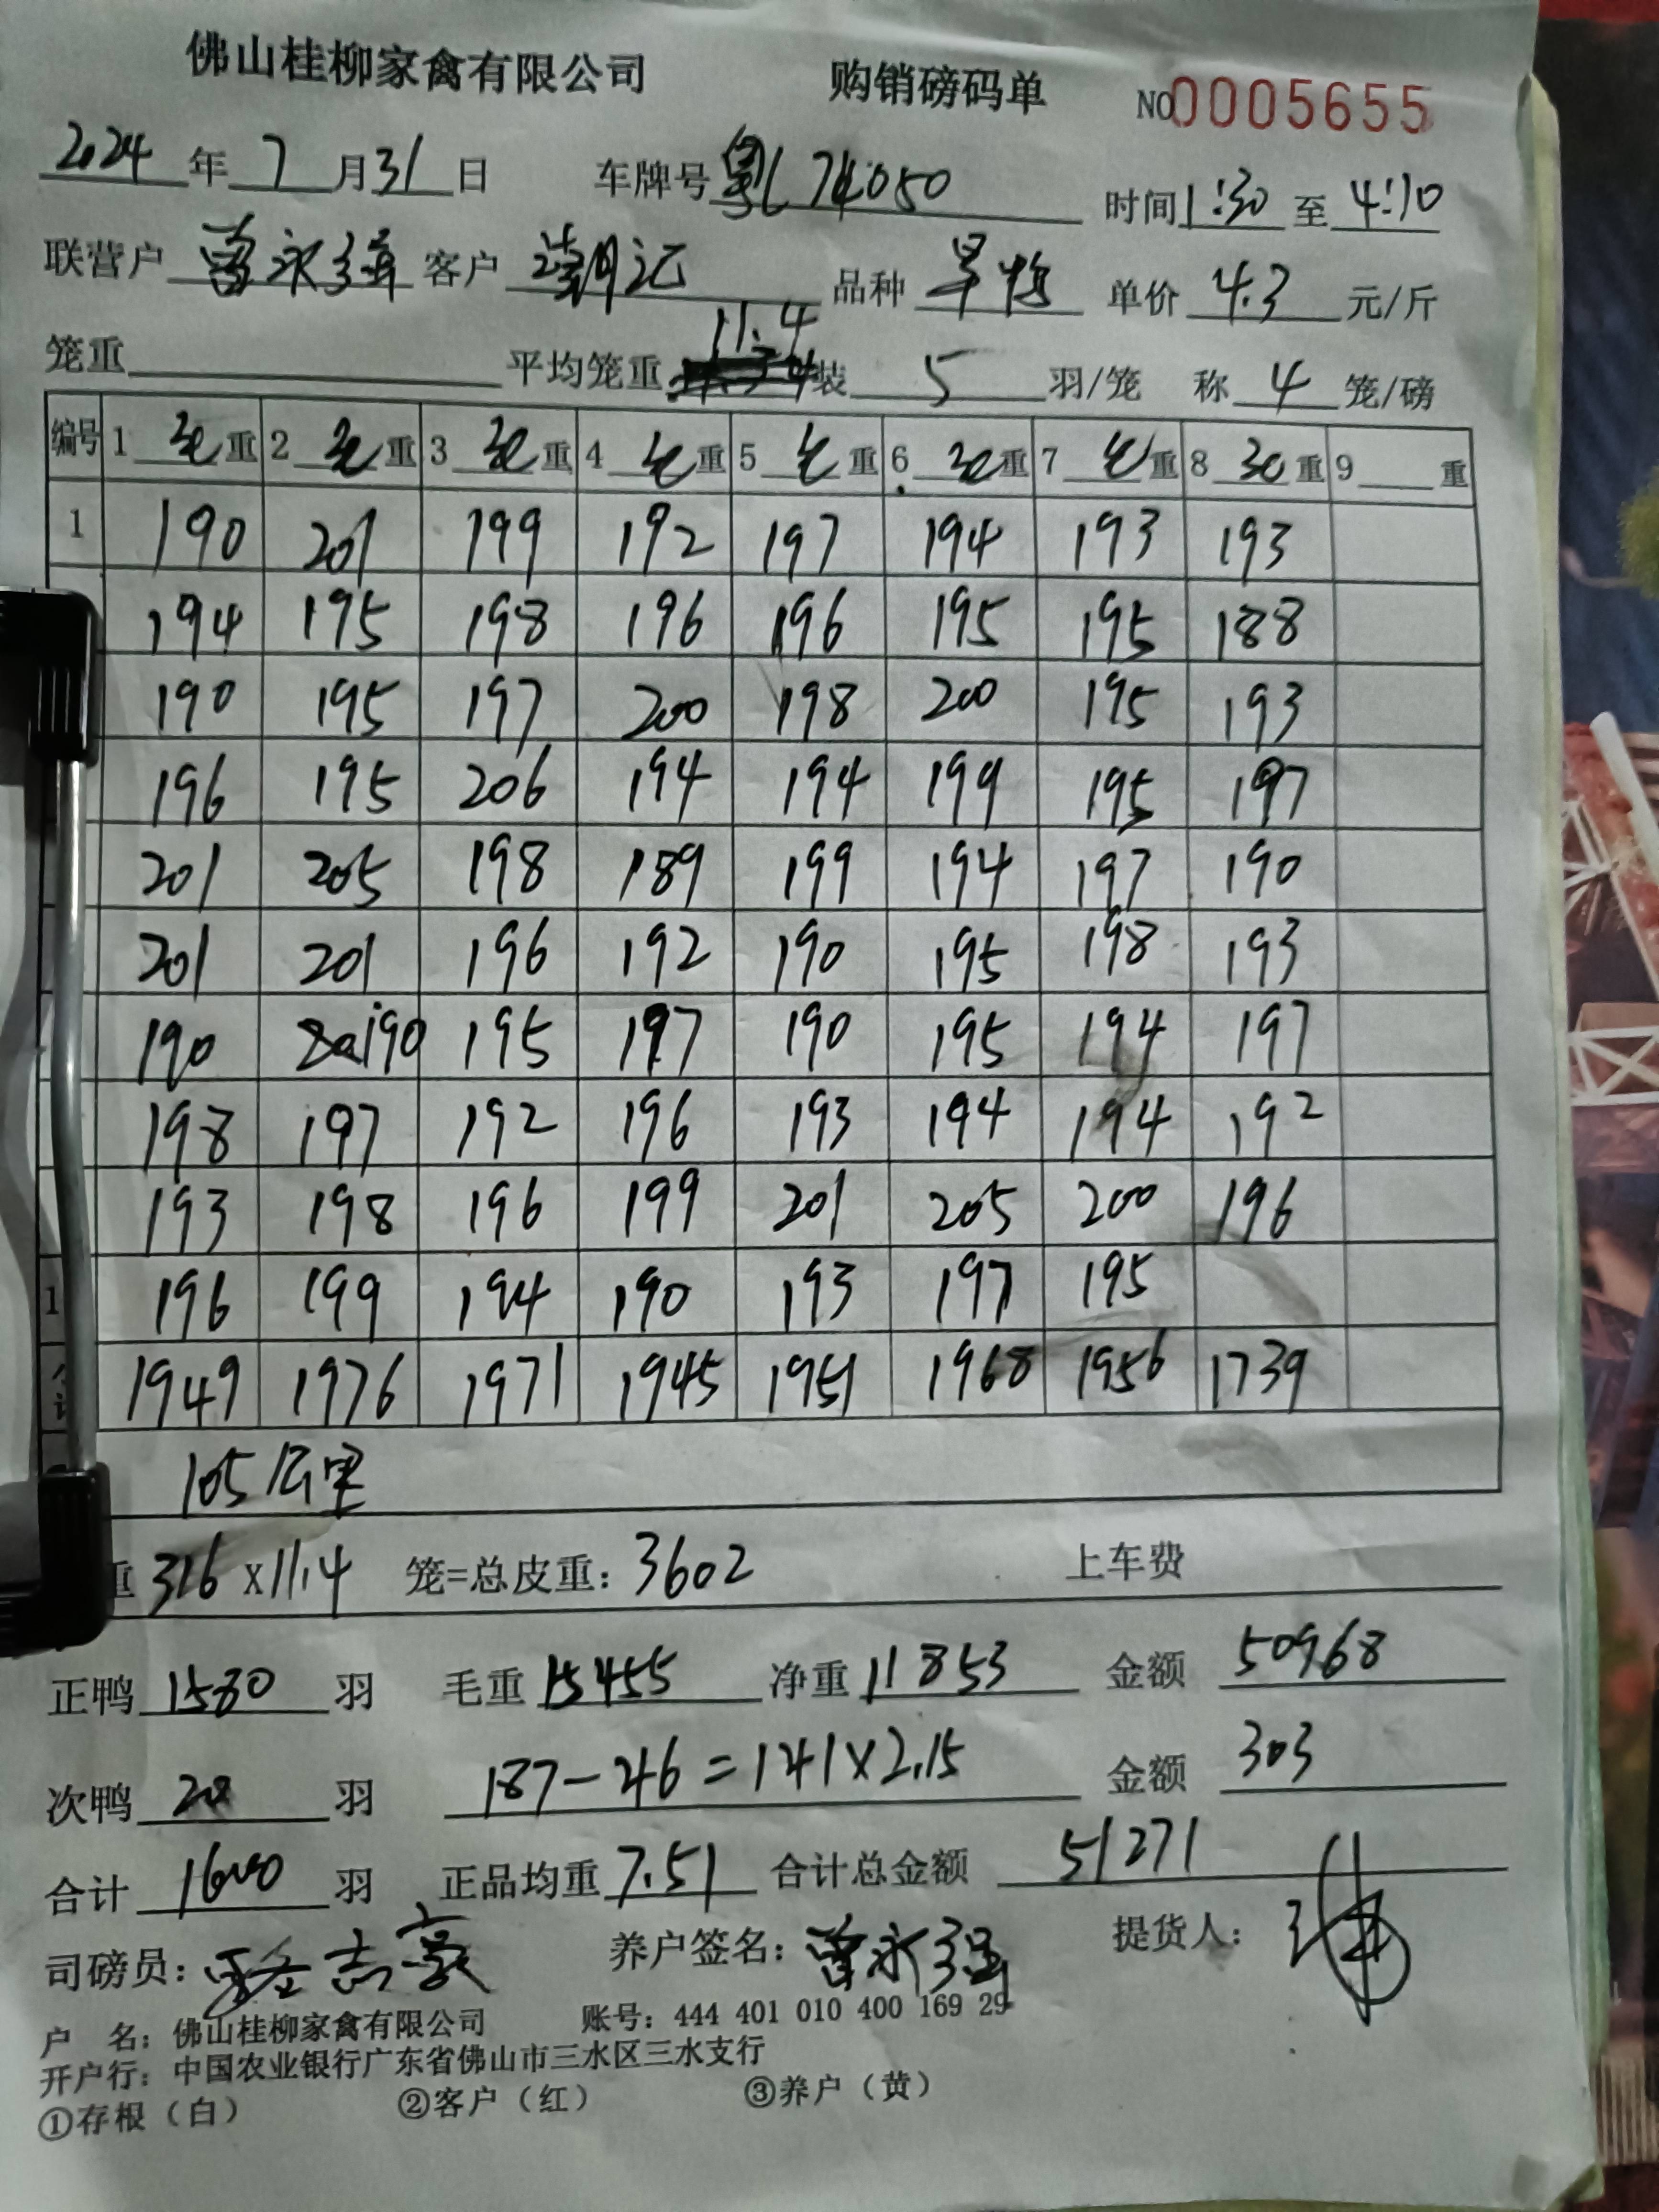 佛山桂柳家禽有限公司 购销磅码单 NO0005655
2024年7月31日 车牌号粤L74050 时间1:30至4:10
联营户曾永强 客户潮记 品种旱鸭 单价4.3元/斤
笼重 平均笼重11.4装5羽/笼 称4笼/磅
编号 1毛重 2毛重 3毛重 4毛重 5毛重 6毛重 7毛重 8毛重 9重
1 190 201 199 192 197 194 193 193
194 195 198 196 196 195 195 188
190 195 197 200 198 200 195 193
196 195 206 194 194 199 195 197
201 205 198 189 199 194 197 190
201 201 196 192 190 195 198 193
190 190 195 197 190 195 194 197
198 197 192 196 193 194 194 192
193 198 196 199 201 205 200 196
1 196 199 194 190 193 197 195
1949 1976 1971 1945 1951 1968 1956 1739
105公里
重316×11.4 笼=总皮重：3602 上车费
正鸭1580羽 毛重15455 净重11853 金额50968
次鸭20羽 187-46=141×2.15 金额303
合计1600羽 正品均重7.51 合计总金额51271
司磅员：志豪 养户签名：曾永强 提货人：
户 名：佛山桂柳家禽有限公司 账号：444 401 010 400 169 29
开户行：中国农业银行广东省佛山市三水区三水支行
①存根（白） ②客户（红） ③养户（黄）